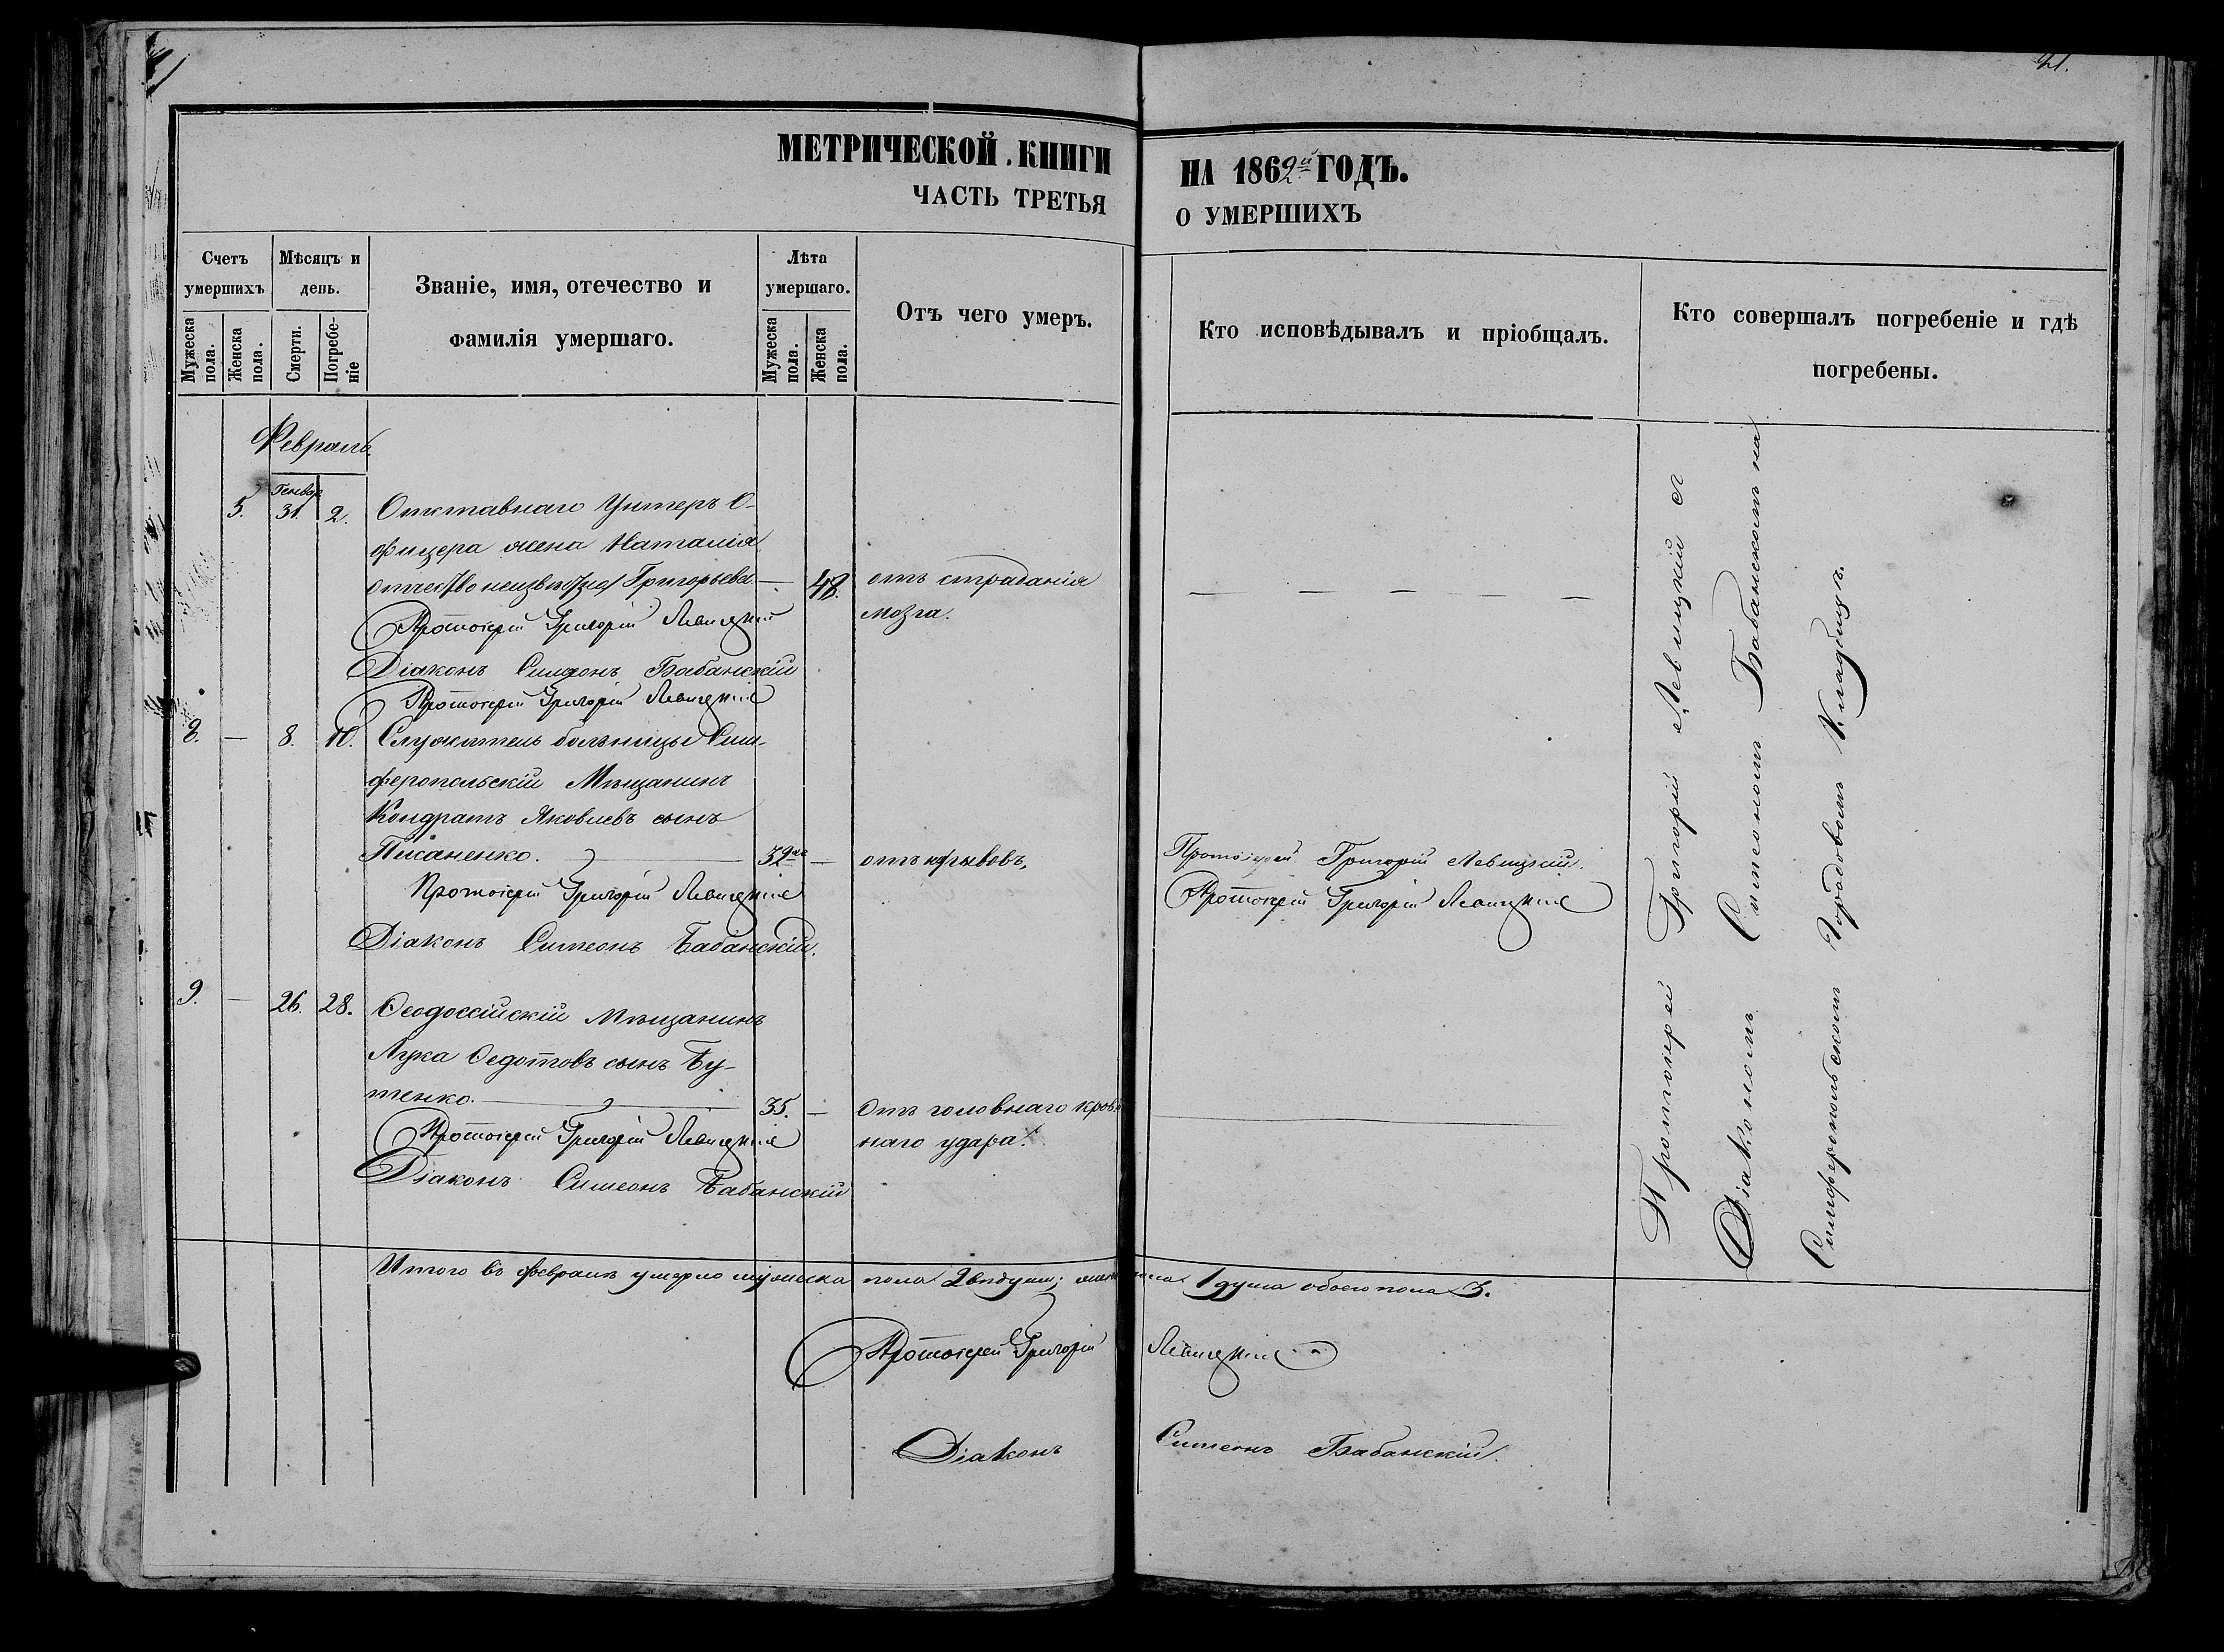 21.
МЕТРИЧЕСКОЙ КНИГИ НА 1862й ГОДЪ.
ЧАСТЬ ТРЕТЬЯ О УМЕРШИХЪ
Счетъ умершихъ
Мужеска пола.
Женска пола.
Мѣсяцъ и день.
Смерти.
Погребеніе
Званіе, имя, отечество и фамилія умершаго.
Лѣта умершаго.
Мужеска пола.
Женска пола.
Отъ чего умеръ.
Кто исповѣдывалъ и пріобщалъ.
Кто совершалъ погребеніе и гдѣ погребены.
Февраль.
Генвар
5. 31. 2. Отставнаго Унтеръ О-
фицера жена Наталія
отчество неизвѣстно Григорьева — 48. отъ страданія
мозга.
Протоіерей Григорій Левицкій
Діаконъ Симеонъ Бабанскій
Протоіерей Григорій Левицкій
8. — 8. 10. Служитель больницы Сим-
феропольскій Мѣщанинъ
Кондратъ Яковлевъ сынъ
Писаненко. 32 — отъ нарывовъ,
Протоіерей Григорій Левицкій.
Протоіерей Григорій Левицкій
Протоіерей Григорій Левицкій
Діаконъ Симеонъ Бабанскій.
9. — 26. 28. Ѳеодоссійскій Мѣщанинъ
Лука Ѳедотовъ сынъ Бу-
тенко. 35. — Отъ головнаго кров
наго удара.
Протоіерей Григорій Левицкій
Діаконъ Симеонъ Бабанскій
Протоіерей Григорій Левицкій съ
Діакономъ Симеономъ Бабанскимъ на
Симферопольскомъ Городовомъ Кладбищѣ.
Итого въ февралѣ умерло мужеска пола 2 души; 1 душа обоего пола 3.
Протоіерей Григорій Левицкій
Діаконъ Симеонъ Бабанскій.